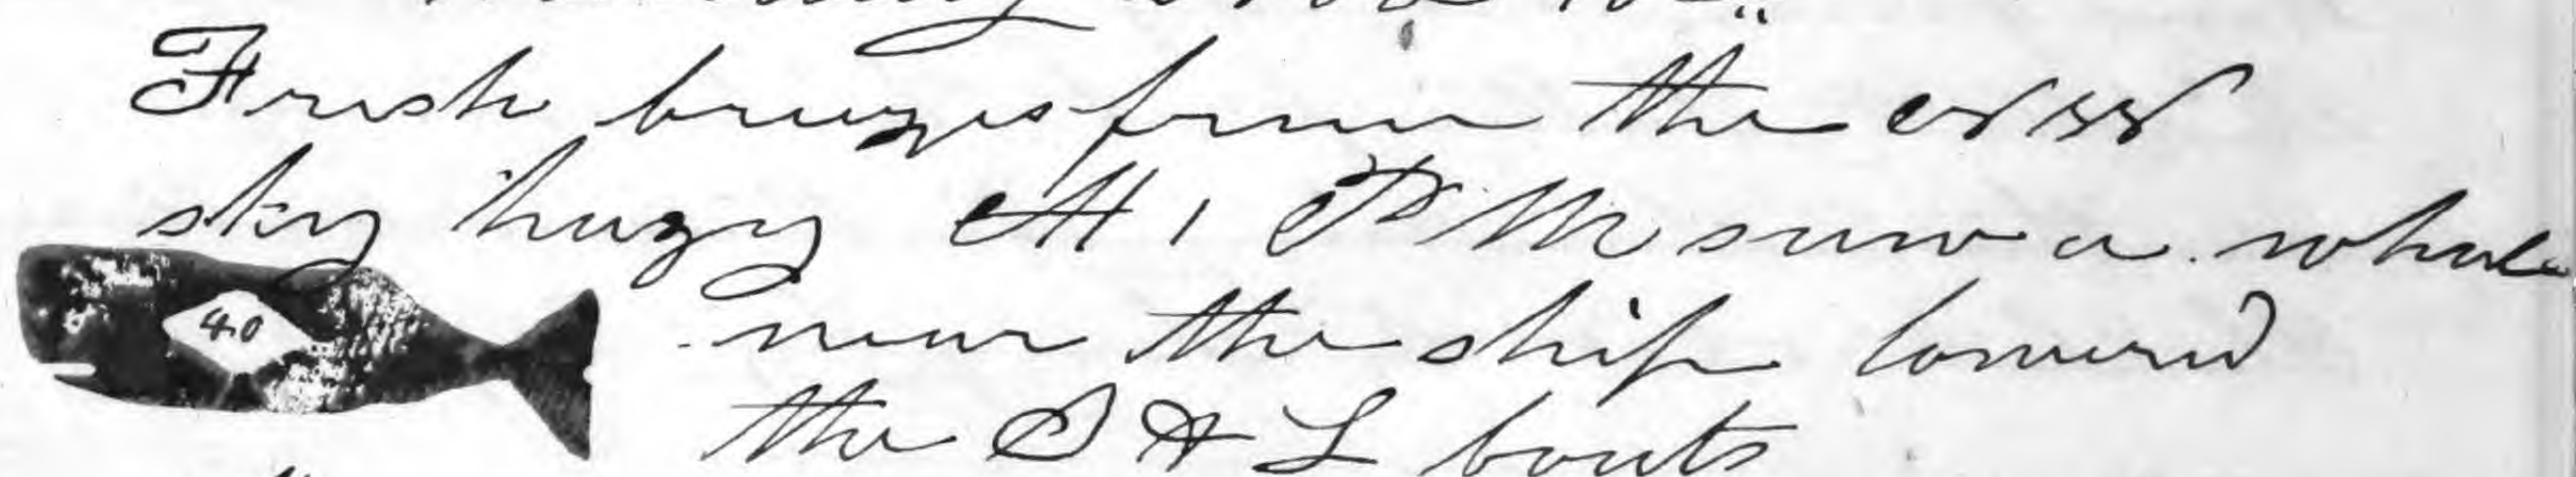 Fresh breezes from the WSW
sky hazy At 1 P M saw a whale
40
near the ship lowered
the S & L boats